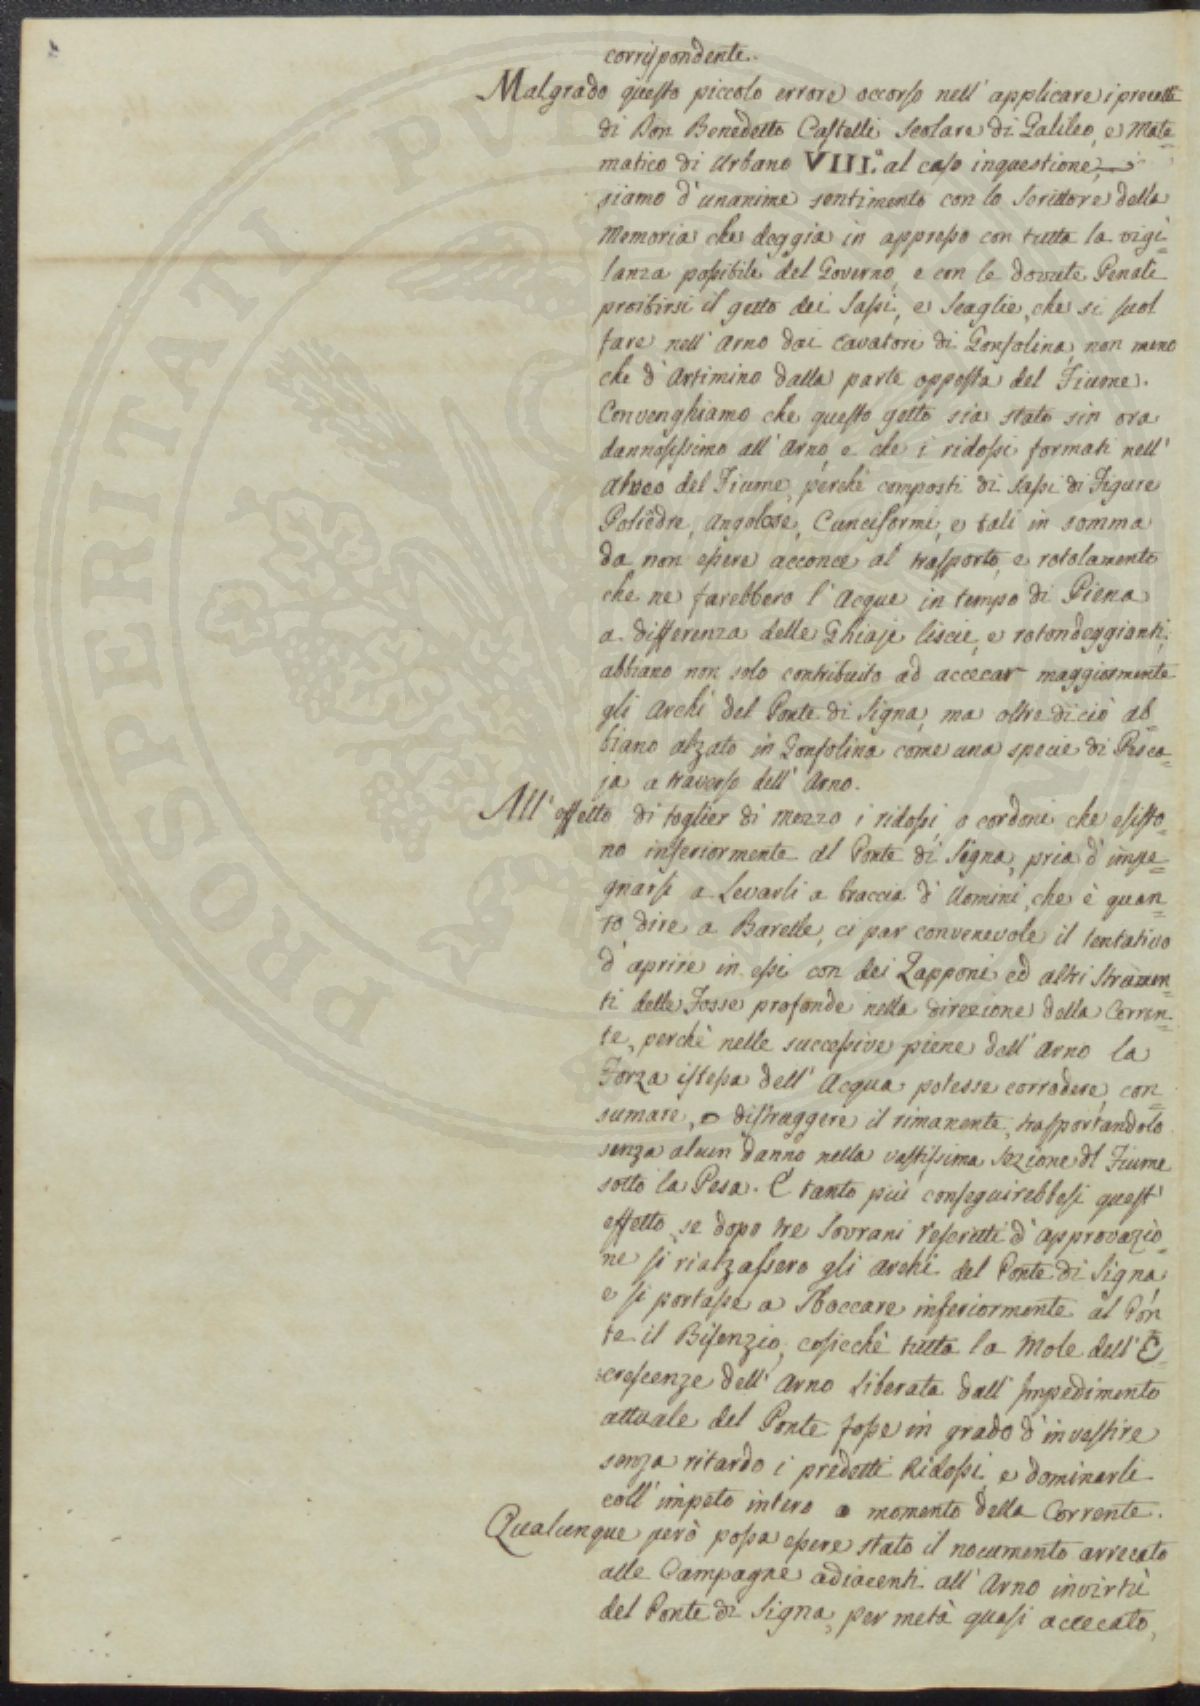 corrispondente.
Malgrado questo piccolo errore occorso nell' applicare i precetti
di Don Benedetto Castelli Scolare di Galileo, e Mate=
matico di Urbano VIII.° al caso inquestione,
siamo d'unanime sentimento con lo Scrittore della
Memoria che deggia in appresso con tutta la vigi=
lanza possibile del Governo, e con le dovute Penali
proibirsi il getto dei Sassi, e Scaglie, che si suol
fare nell' Arno dai Cavatori di Gonfolina, non meno
che d'Artimino dalla parte opposta del Fiume.
Convenghiamo che questo getto sia stato sin ora
dannosissimo all' Arno, e che i ridossi formati nell'
alveo del Fiume, perchè composti di Sassi di Figure
Poliedre, Angolose, Cuneiformi, e tali in somma
da non essere acconce al trasporto, e rotolamento
che ne farebbero l'Acque in tempo di Piena
a differenza delle Ghiaje liscie, e rotondeggianti,
abbiano non solo contribuito ad accecar maggiormente
gli Archi del Ponte di Signa, ma oltre di ciò ab=
biano alzato in Gonfolina come una specie di Pesca=
ja a traverso dell' Arno.
All' effetto di toglier di mezzo i ridossi, o cordoni che esisto=
no inferiormente al Ponte di Signa, pria d'impe=
gnarsi a Levarli a braccia d'Uomini, che è quan=
to dire a Barelle, ci par convenevole il tentativo
d'aprire in essi con dei Zapponi ed altri Strumen=
ti delle Fosse profonde nella direzione della Corren=
te, perchè nelle successive piene dell' Arno la
Forza istessa dell' Acqua potesse corrodere, con=
sumare, o distruggere il rimanente, trasportandolo
senza alcun danno nella vastissima Sezione del Fiume
sotto la Pesa. E tanto più conseguirebbesi quest'
effetto, se dopo tre Sovrani rescritti d'approvazio=
ne si rialzassero gli Archi del Ponte di Signa,
e si portasse a Sboccare inferiormente al Pon=
te il Bisenzio, cosicchè tutta la Mole dell' E=
screscenze dell' Arno Liberata dall' Impedimento
attuale del Ponte fosse in grado d'investire
senza ritardo i predetti Ridossi, e dominarli
coll' impeto intero o momento della Corrente.
Qualunque però possa essere stato il nocumento arrecato
alle Campagne adiacenti all' Arno invirtù
del Ponte di Signa, per metà quasi accecato,
PROSPERITATI PVBLICAE